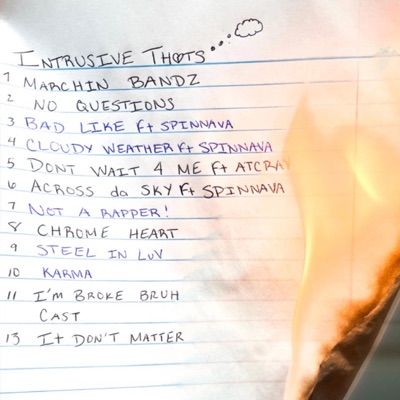 INTRUSIVE THOTS
1 MARCHIN BANDZ
2 NO QUESTIONS
3 BAD LIKE ft SPINNAVA
4 CLOUDY WEATHER ft SPINNAVA
5 DONT WAIT 4 ME ft ATCRAY
6 ACROSS da SKY Ft SPINNAVA
7 NOT A RAPPER!
8 CHROME HEART
9 STEEL IN LuV
10 KARMA
11 I'M BROKE BRUH
CAST
13 It DON'T MATTER